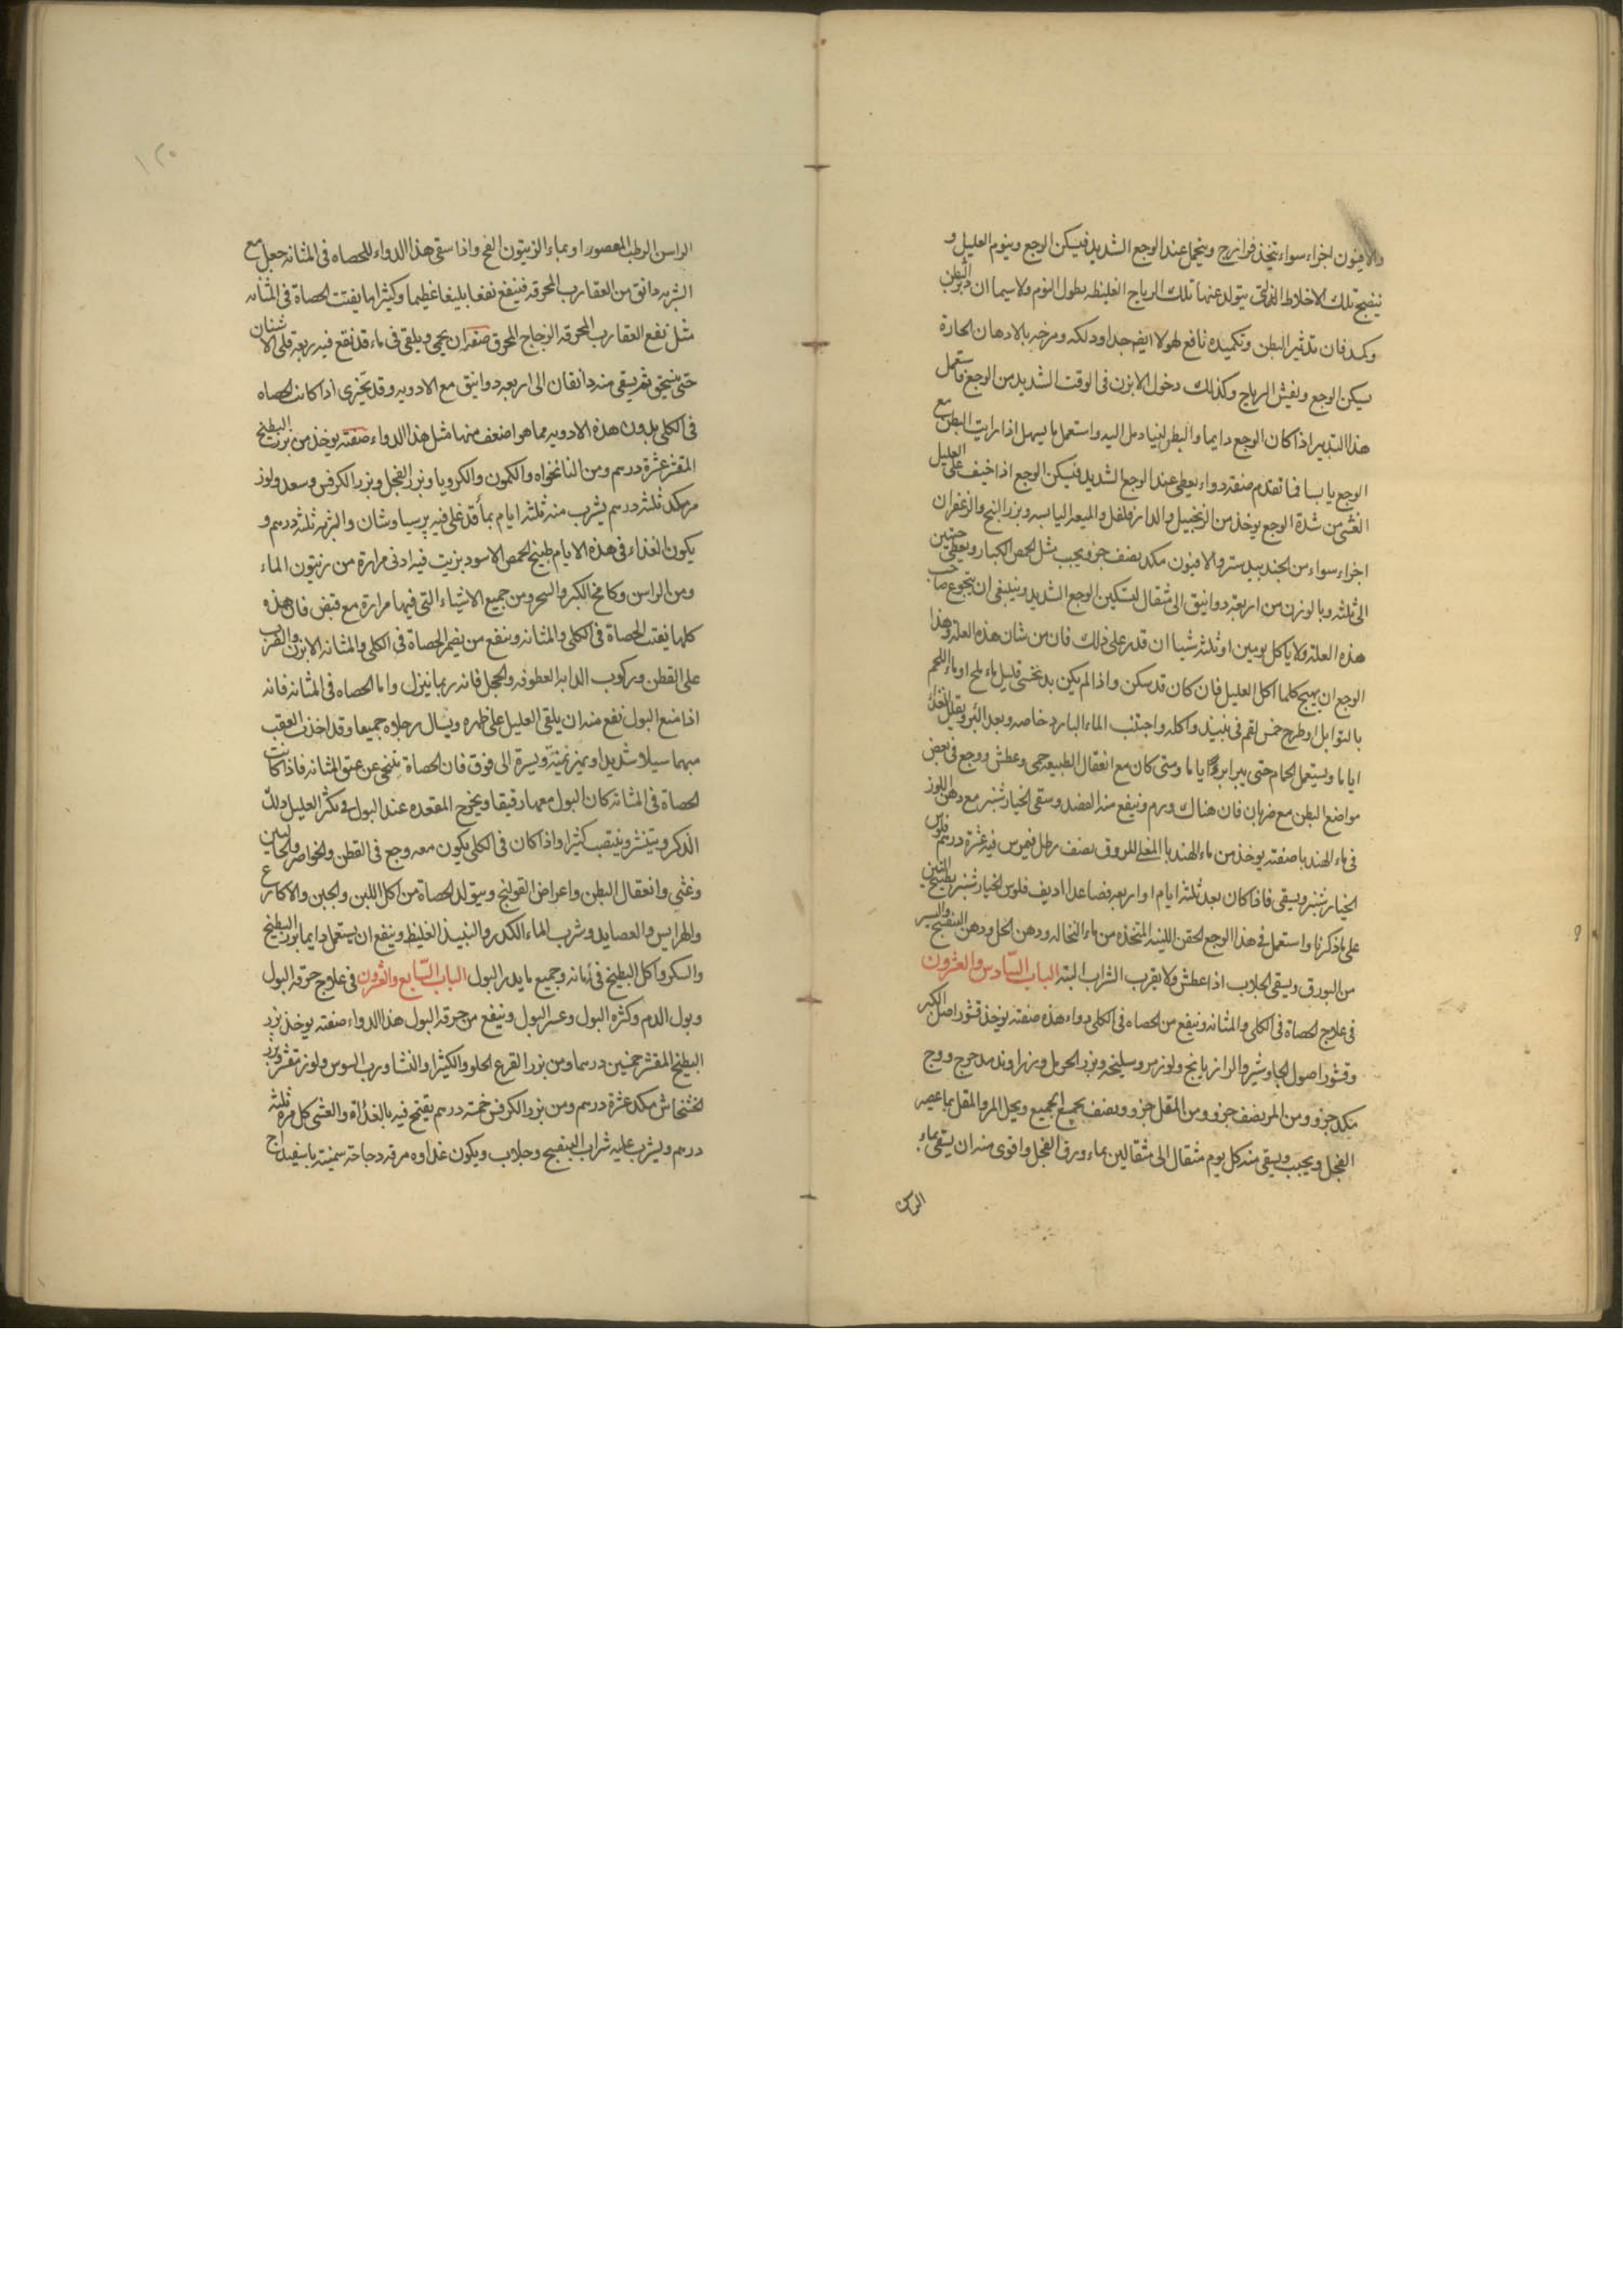 والافيون اجزاء سواء يتخذ فرازج ويتحمل عند الوجع الشديد فيسكن الوجع وينوم العليل و
ينضج تلك الاخلاط التى يتولد عنها تلك الرياح الغليظه بطول النوم ولا سيما ان دثر البطن
وكمد فان تدثير البطن وتكميده نافع لهولا ايضا جدا ودلكه ومرخه بالادهان الحارة
يسكن الوجع ويفش الرياح وكذلك دخول الابزن فى الوقت الشديد من الوجع فاستعمل
هذا التدبير اذا كان الوجع دايما والبطن لينا ومل اليه واستعمل ما يسهل اذا رايت البطن مع
الوجع يابسا فما تقدم صفة دواء يعطى عند الوجع الشديد فيسكن الوجع اذا خيف على العليل
الغشى من شدة الوجع يوخذ من الزنجبيل والدارفلفل والميعه اليابسه وبزر البنج والزعفران
اجزاء سواء من الجندبيدستر والافيون مكد نصف جزو يحبب مثل الحمص الكبار ويعطى حبتين
الى ثلثه وبالوزن من اربعة دوانيق الى مثقال لتسكين الوجع الشديد وينبغى ان يتجوع صاحب
هذه العلة ولا ياكل يومين او ثلثه شيا ان قدر على ذلك فان من شان هذه العلة وهذا
الوجع ان يهيج كلما اكل العليل فان كان قد سكن واذا لم يكن بد تحسى قليل ماء ملح او ماء اللحم
بالتوابل او طرح خمس لقم فى نبيذ واكله واجتنب الماء البارد خاصه وبعد البرو يقلل الغذا
اياما ويستعمل الحمام حتى يبرا اياما ومتى كان مع انعقال الطبيعه حمى وعطش ووجع فى بعض
مواضع البطن مع ضربان فان هناك ورم وينفع منه الفصد وسقى الخيارشنبر مع دهن اللوز
فى ماء الهندبا صفته يوخذ من ماء الهندبا المغلى المروق نصف رطل فيمرس فيه عشرة درهم فلوس
الخيارشنبر ويسقى فاذا كان بعد ثلثة ايام او اربعه فصاعدا اديف فلوس الخيارشنبر بطبيخ التين
على ما ذكرنا واستعمل فى هذا الوجع الحقن اللينه المتخذه من ماء النخاله ودهن الحل ودهن البنفسج واليسير
من البورق ويسقى الجلاب اذا عطش ولا يقرب الشراب البته الباب السادس والعشرون
فى علاج الحصاة فى الكلى والمثانه وينفع من الحصاه فى الكلى دواء هذه صفته يوخذ قشور اصل الكبر
وقشور اصول الجاوشير والرازيانج ولوز مر وسليخه وبزر الحرمل وزراوند مدحرج ووج
مكد جزو ومن المر نصف جزو ومن المقل جزو ونصف يجمع الجميع ويحل المر والمقل بما عصير
الفجل ويحبب ويسقى منه كل يوم مثقال الى مثقالين بماء ورق الفجل واقوى منه ان يسقى بماء
الراسن
١٢٥
الراسن الرطب المعصور او بماء الزيتون الفج واذا سقى هذا الدواء للحصاه فى المثانه جعل مع
الشربه دانق من العقارب المحرقه فينفع نفعا بليغا عظيما وكثيرا ما يفتت الحصاة فى المثانه
مثل نفع العقارب المحرقه الزجاج المحرق صفته ان يحمى ويلقى فى ماء قد نقع فيه ربعه قلى الاشنان
حتى ينسحق ثم يسقى منه دانقان الى اربعه دوانيق مع الادويه وقد يجزى اذا كانت الحصاه
فى الكلى بدون هذه الادويه مما هو اضعف منها مثل هذا الدواء صفته يوخذ من بزر البطيخ
المقشر عشرة درهم ومن النانخواه والكمون والكرويا وبزر الفجل وبزر الكرفس وسعد ولوز
مر مكد ثلثة درهم يشرب منه ثلثة ايام بما قد غلى فيه پرسياوشان والشربة ثلثة درهم و
يكون الغذاء فى هذه الايام طبيخ الحمص الاسود بزيت فيه ادنى مرارة من زيتون الماء
ومن الراسن وكامخ الكبر والسحر ومن جميع الاشياء التى فيها مرارة مع قبض فان هذه
كلها يفتت الحصاة فى الكلى والمثانه وينفع من يضر الحصاة فى الكلى والمثانه الابزن والضرب
على القطن وركوب الدابه العطوفه والحجل فانه ربما ينزل واما الحصاه فى المثانه فانه
اذا منع البول نفع منه ان يلقى العليل على ظهره ويشال رجلاه جميعا وقد اخذت العقب
منهما سيلا شديدا ويهز يمنة ويسرة الى فوق فان الحصاة تتنحى عن عنق المثانه فاذا كانت
الحصاة فى المثانه كان البول معها رقيقا ويخرج المقعده عند البول فى يكثر العليل دلك
الذكر وينتشر وينتصب كثيرا واذا كان فى الكلى يكون معه وجع فى القطن والخواصر والحالبين
وغثى وانعقال البطن واعراض القولنج ويتولد الحصاة من اكل اللبن والجبن والاكارع
والهرايس والعصايد وشرب الماء الكدر والنبيذ الغليظ وينفع ان يستعمل دايما بزر البطيخ
والسكر واكل البطيخ فى زمانه وجميع ما يدر البول الباب السابع والعشرون فى علاج حرقه البول
وبول الدم وكثره البول وعسر البول وينفع من حرقه البول هذا الدواء صفته يوخذ بزر
البطيخ المقشر خمسين درسما ومن بزر القرع الحلو والكثيرا والنشا ورب السوس ولوز مقشر وبزر
الخشخاش مكد عشرة درهم ومن بزر الكرفس خمسة درهم يقتمح فيه بالغداة والعشى كل مره ثلثة
درهم ويشرب عليه شراب البنفسج وجلاب ويكون غداوه مرقه دجاجة سمينة باسفيداج